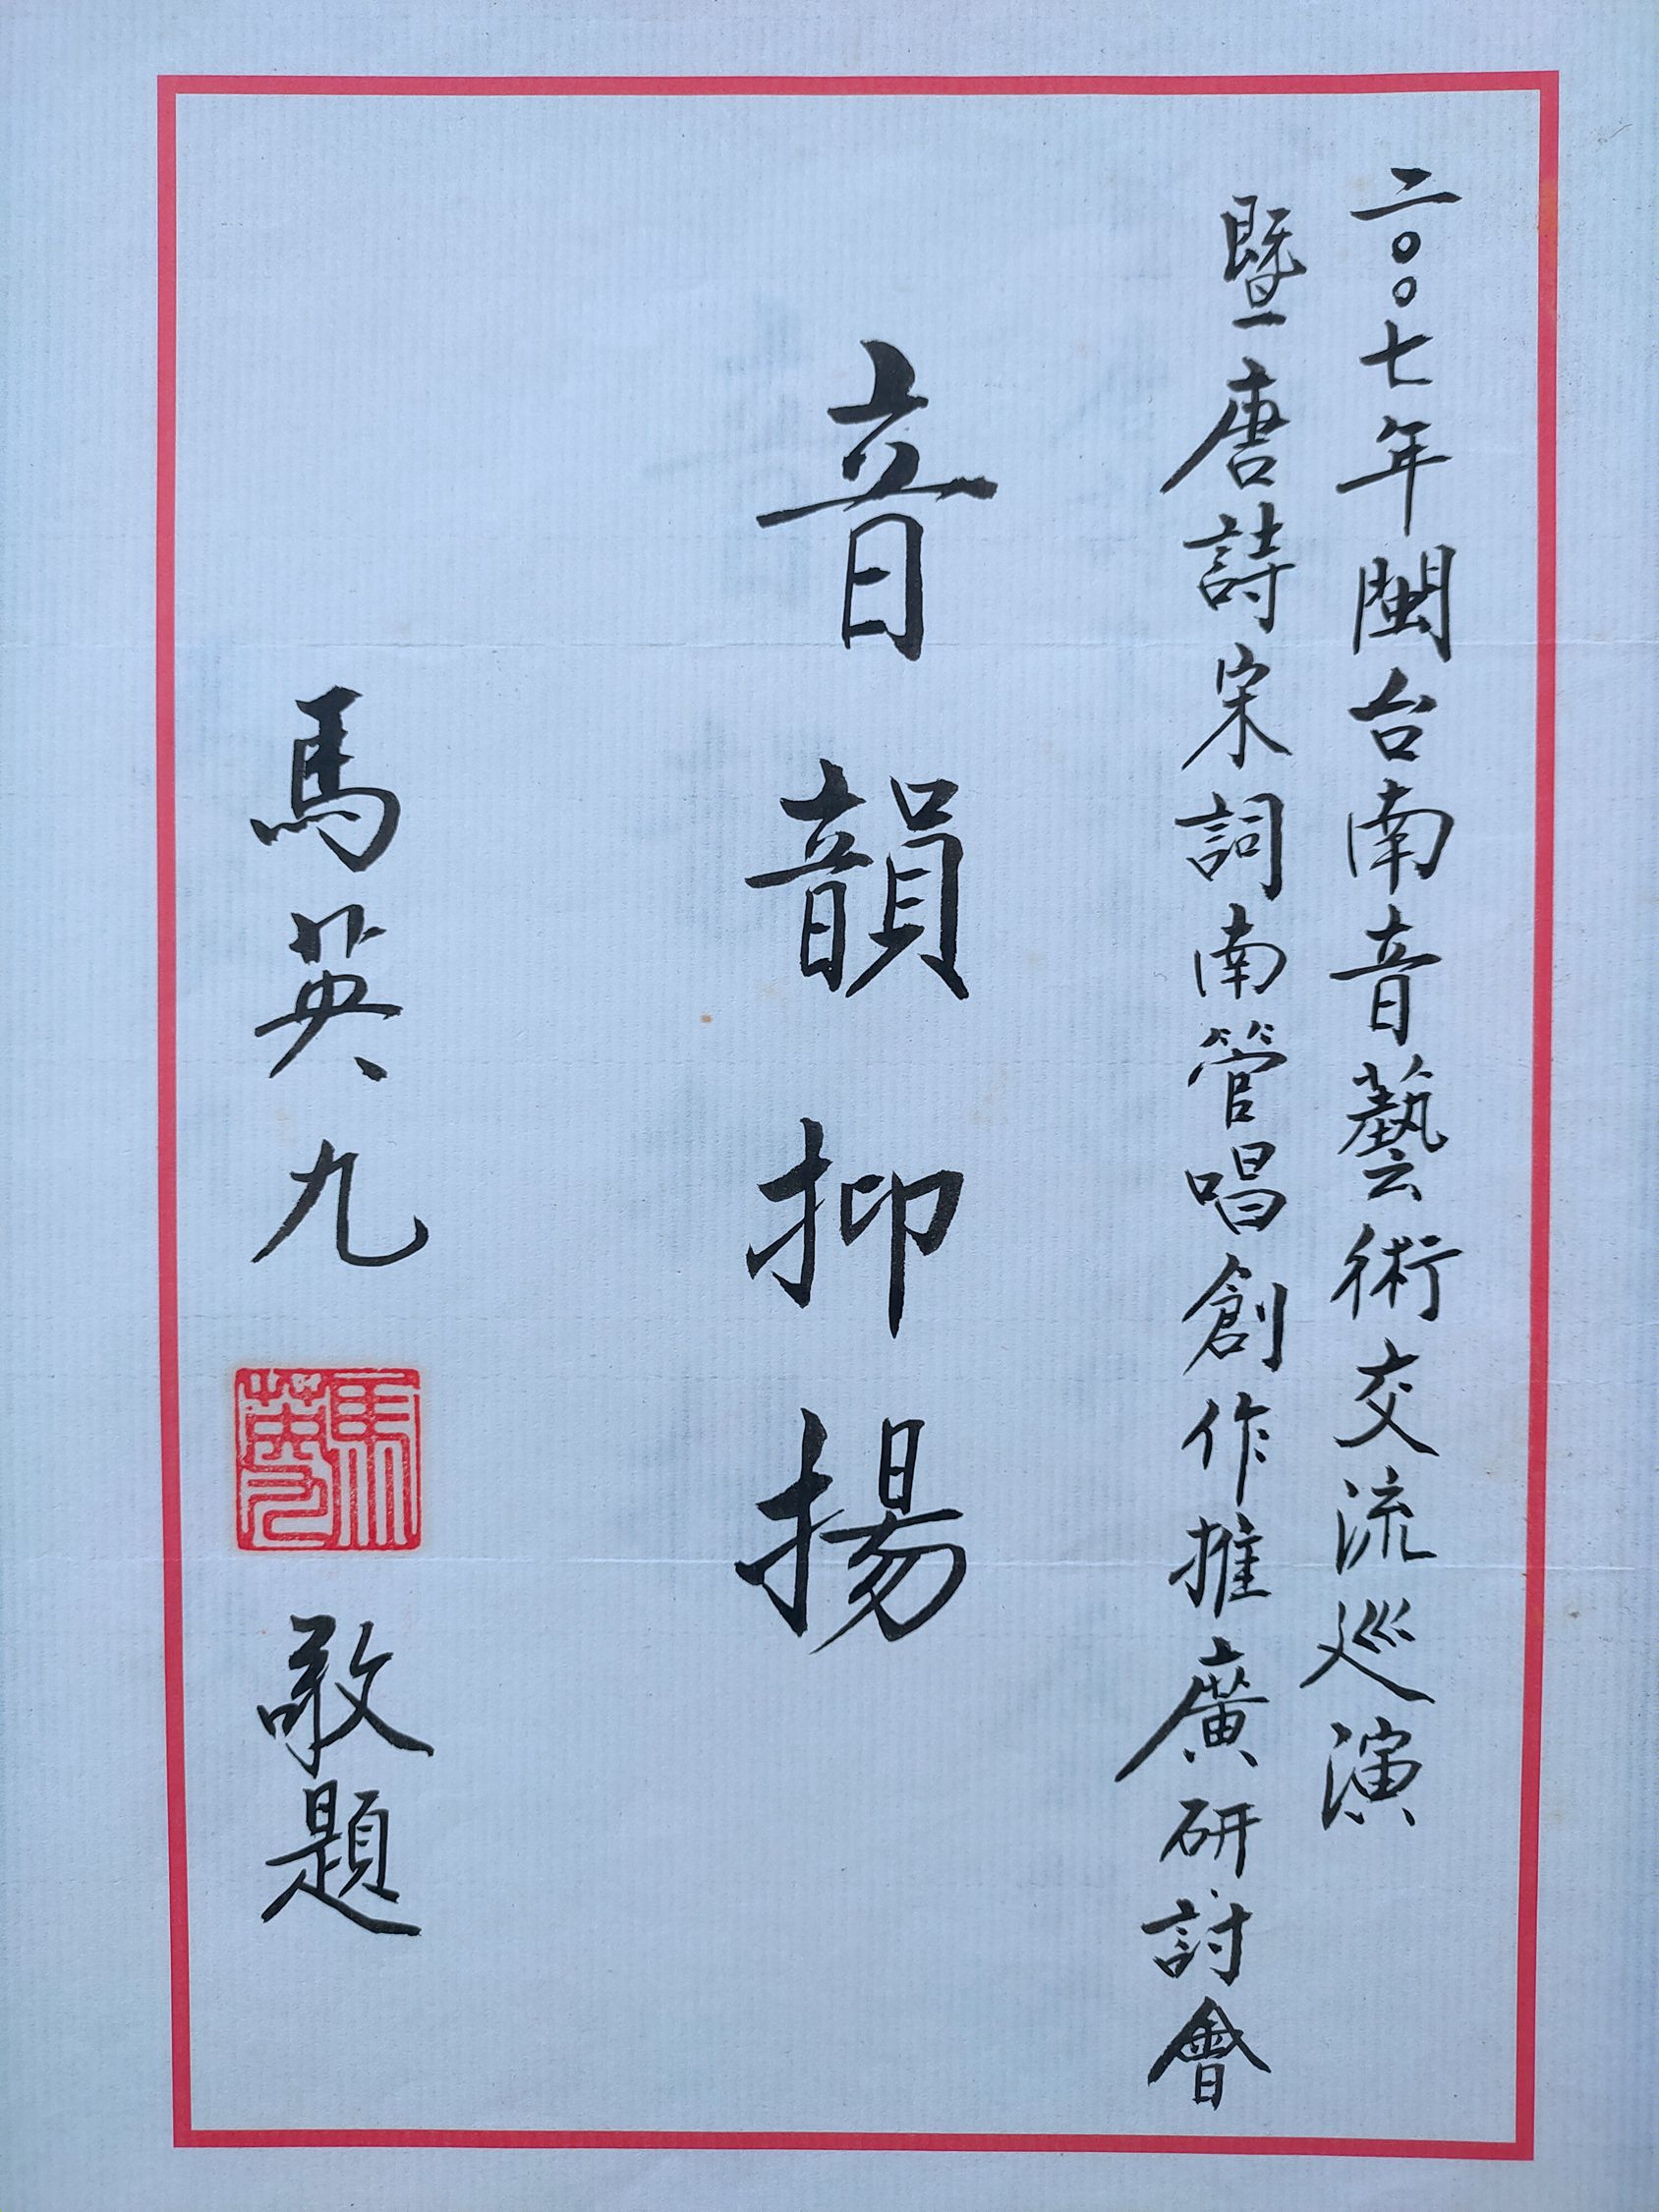 二〇〇七年閩台南音藝術交流巡演
暨唐詩宋詞南管唱創作推廣研討會
音韻抑揚
馬英九
馬英九
敬題